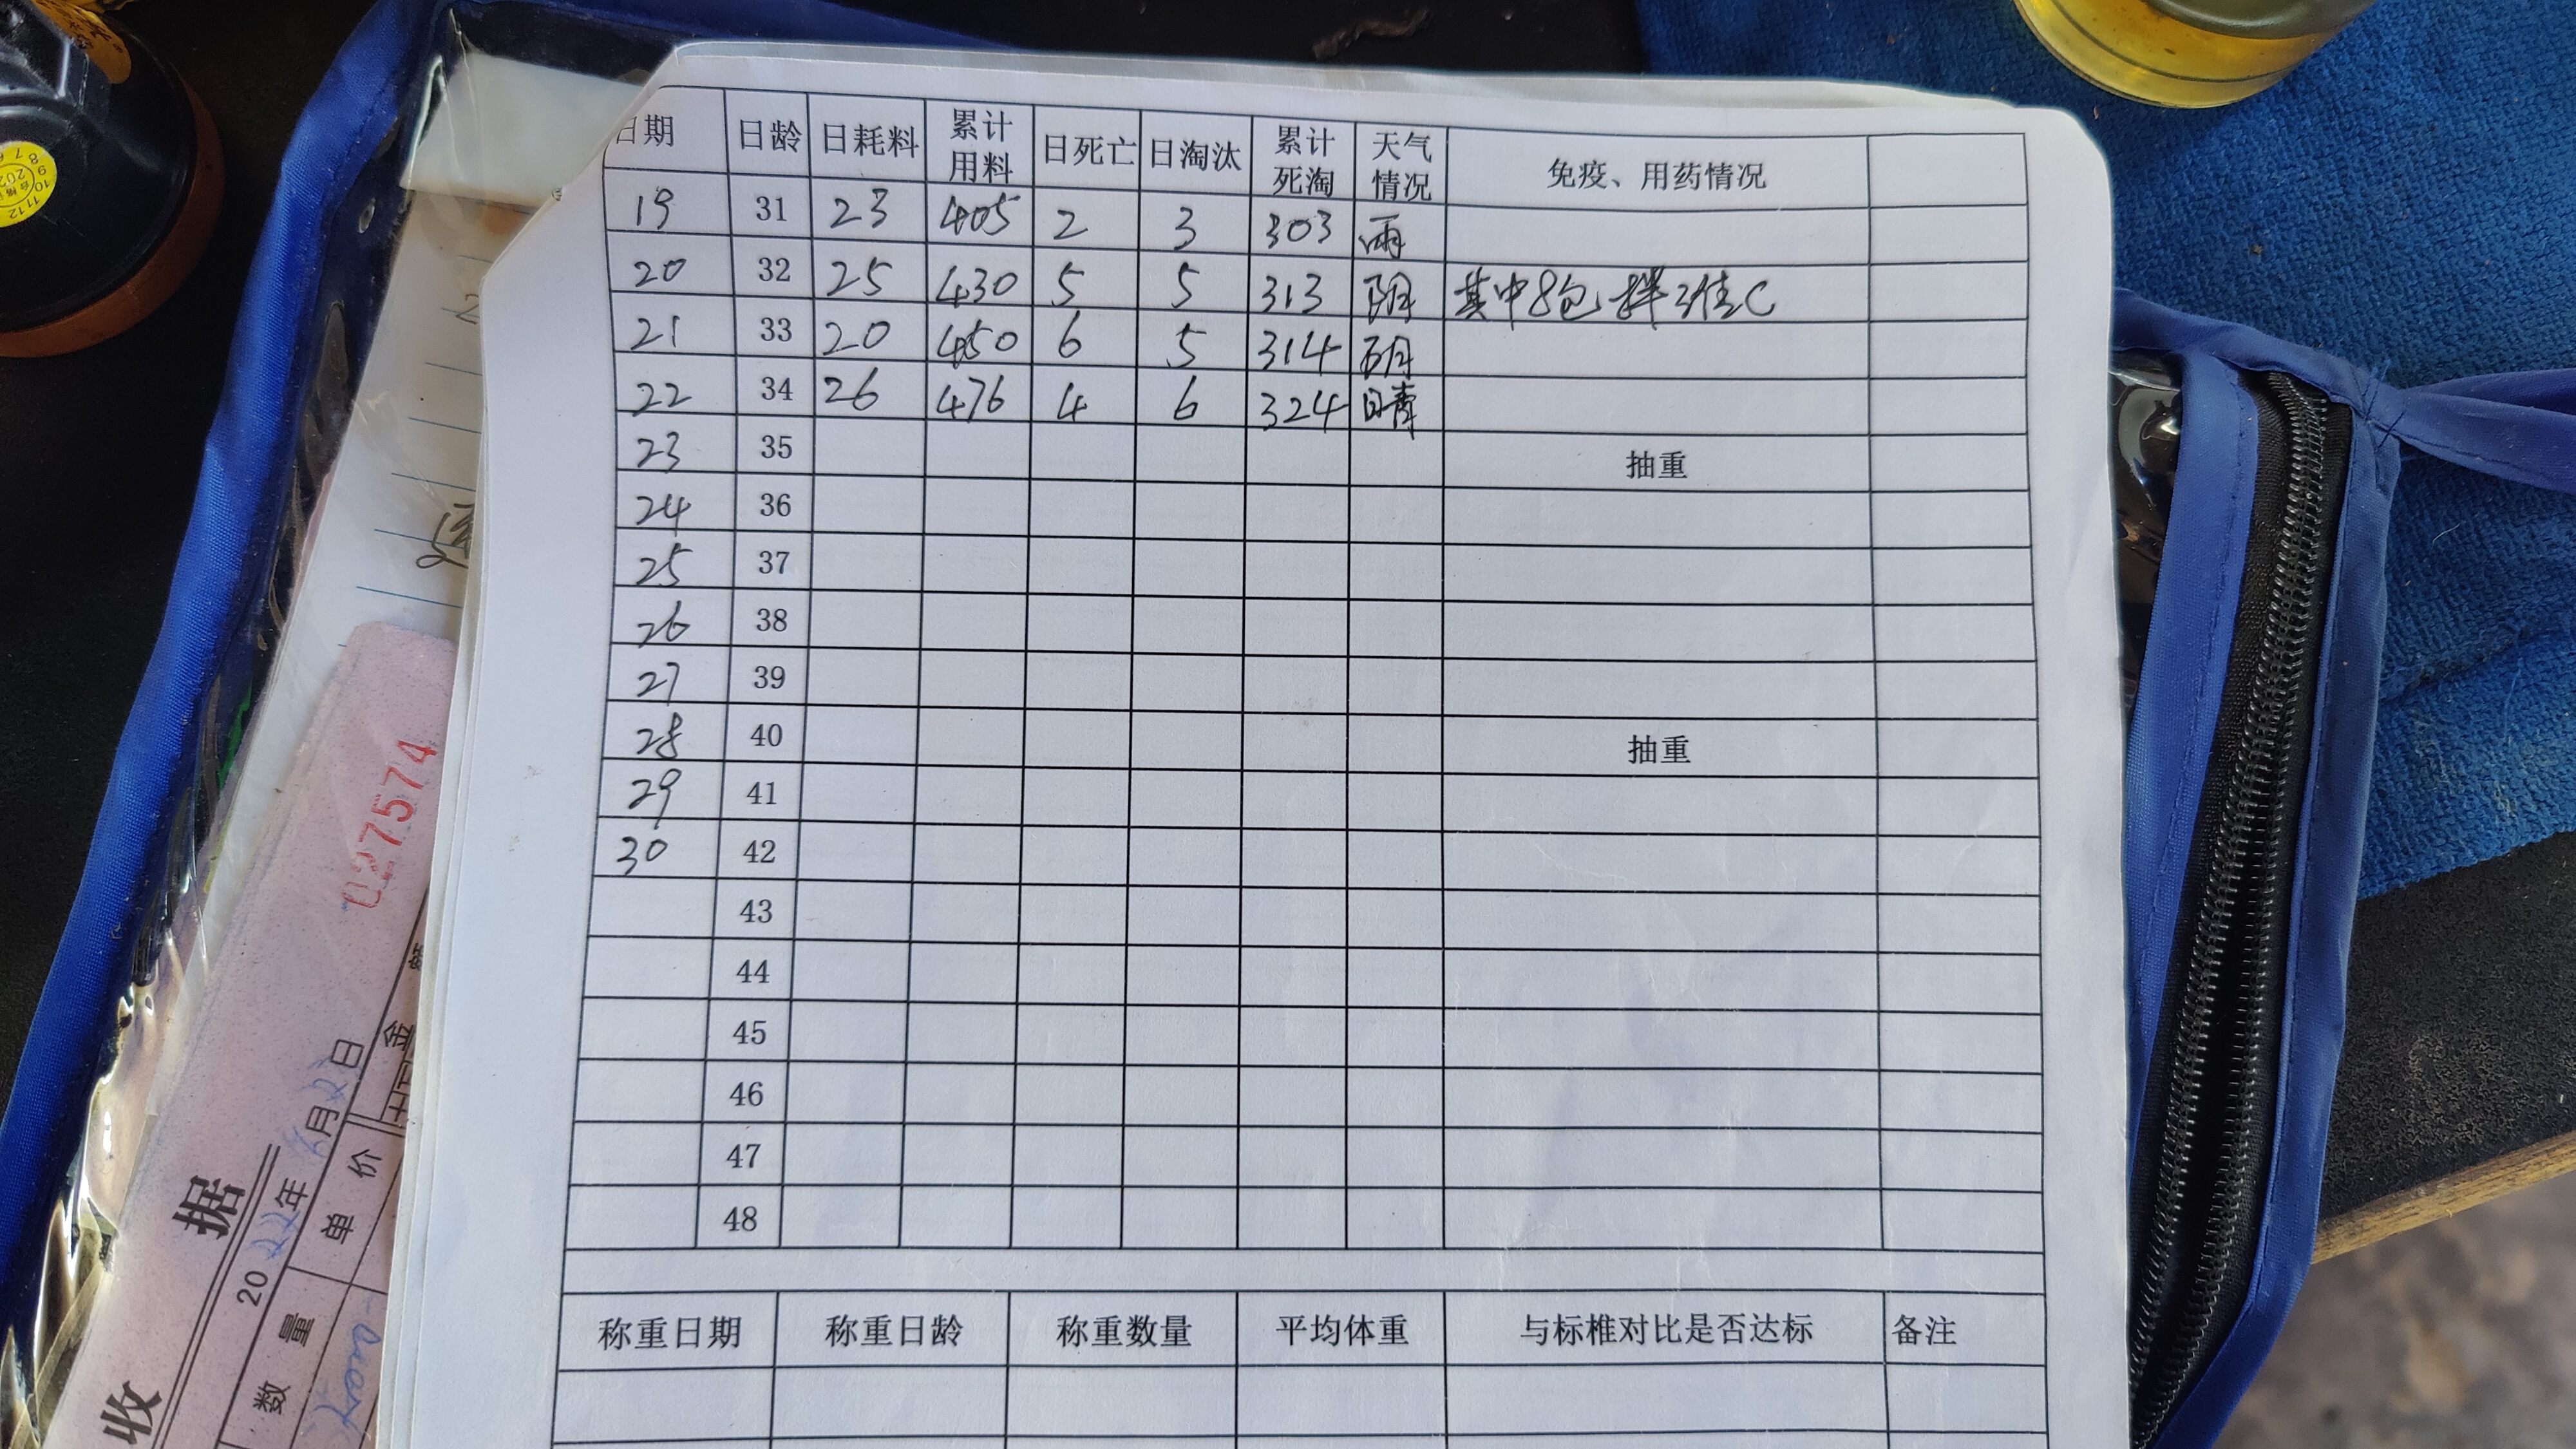 日期 日龄 日耗料 累计用料 日死亡 日淘汰 累计死淘 天气情况 免疫、用药情况
19 31 23 405 2 3 303 雨
20 32 25 430 5 5 313 阴 其中8包拌维C
21 33 20 450 6 5 314 阴
22 34 26 476 4 6 324 晴
23 35 抽重
24 36
25 37
26 38
27 39
28 40 抽重
29 41
30 42
43
44
45
46
47
48
称重日期 称重日龄 称重数量 平均体重 与标椎对比是否达标 备注
027574
收据
20 年 月 日
数量 单价 金